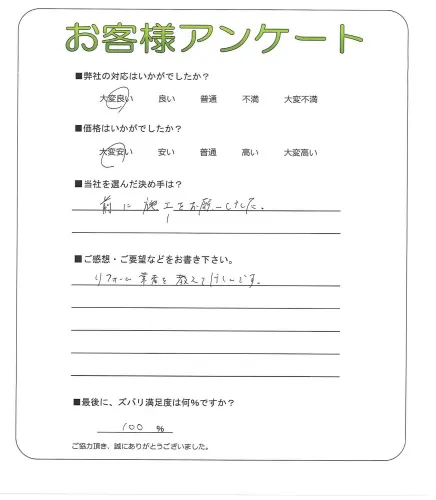 お客様アンケート
■弊社の対応はいかがでしたか？
大変良い 良い 普通 不満 大変不満
■価格はいかがでしたか？
大変安い 安い 普通 高い 大変高い
■当社を選んだ決め手は？
前に施工をお願いしました。
■ご感想・ご要望などをお書き下さい。
リフォーム業者を教えてほしいです。
■最後に、ズバリ満足度は何%ですか？
100 %
ご協力頂き、誠にありがとうございました。